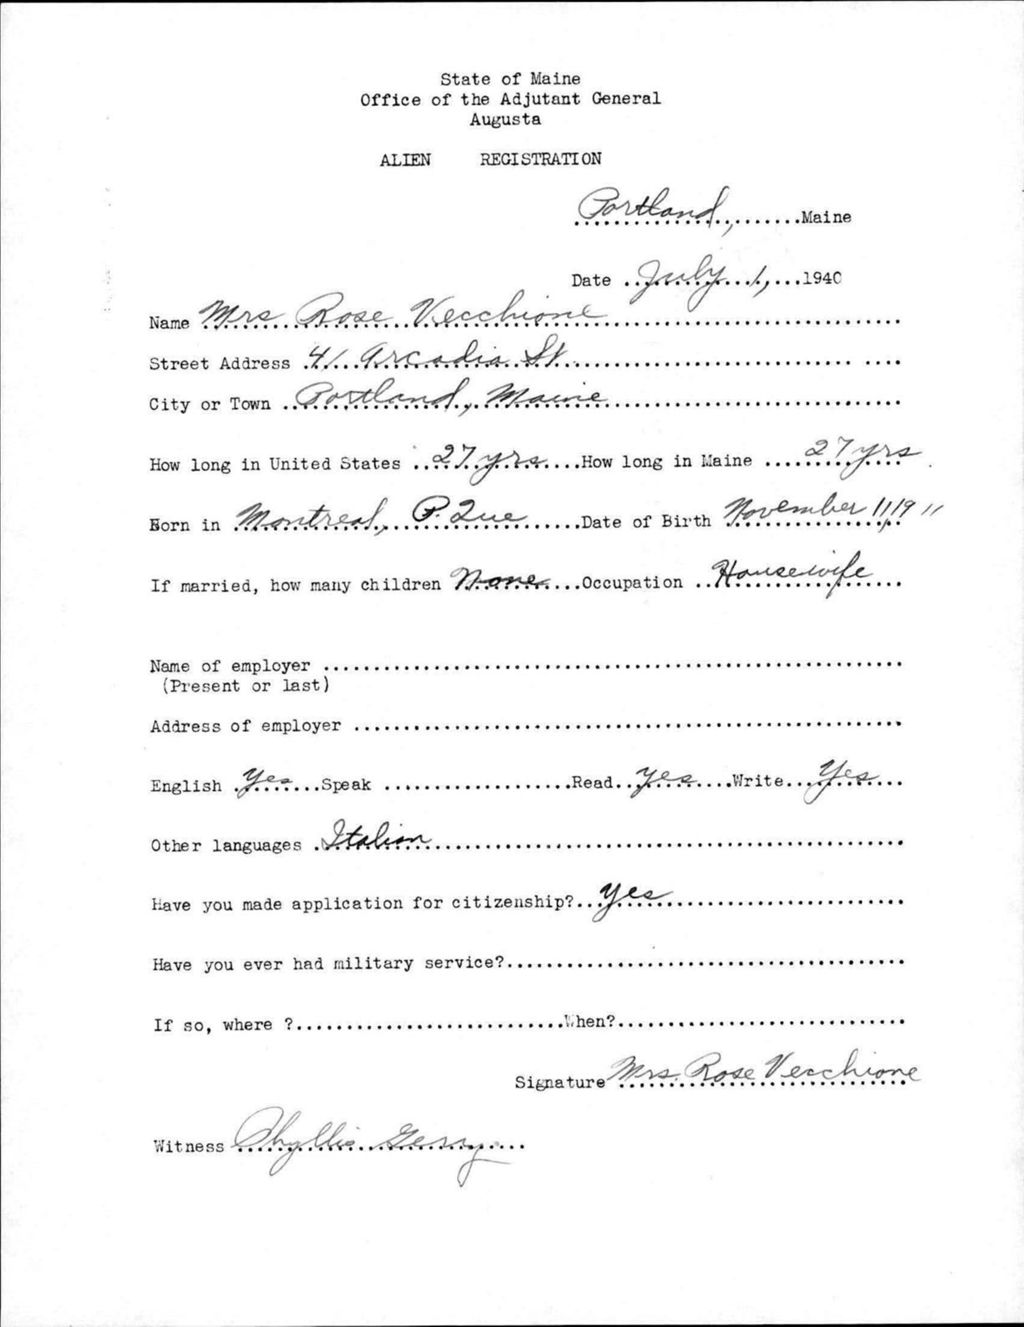 State of Maine
Office of the Adjutant General
Augusta
ALIEN REGISTRATION
Portland, Maine
Date July 1, 1940
Name Mrs Rose Vecchione
Street Address 41 Arcadia St.
City or Town Portland, Maine
How long in United States 27 yrs How long in Maine 27 yrs
Born in Montreal, P. Que Date of Birth November 11, 1911
If married, how many children None Occupation Housewife
Name of employer
(Present or last)
Address of employer
English Yes Speak Read Yes Write Yes
Other languages Italian
Have you made application for citizenship? Yes
Have you ever had military service?
If so, where ? When?
Signature Mrs. Rose Vecchione
Witness Phyllis Gerry